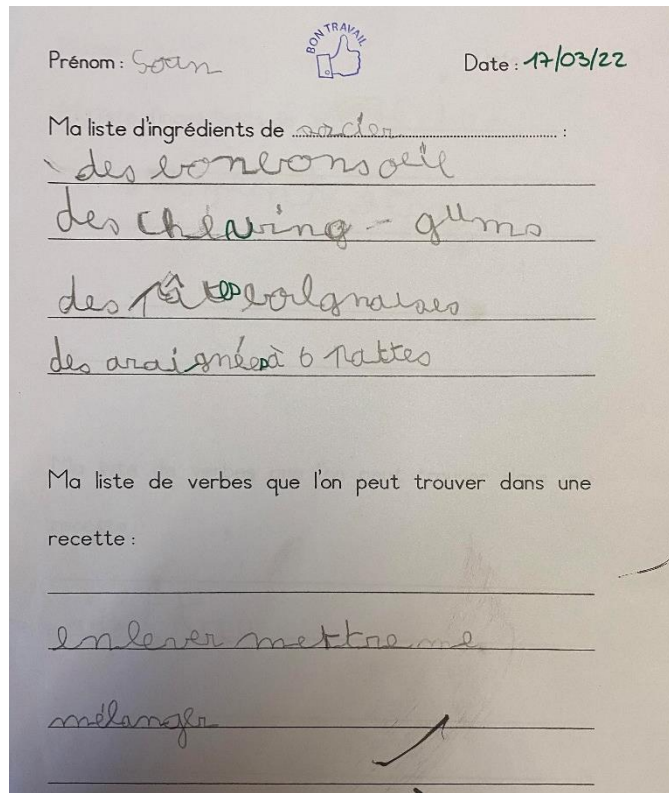 BON TRAVAIL
Prénom : Soan Date : 17/03/22
Ma liste d'ingrédients de sorcier :
des bonbons oeil
des chewing-gums
des pâtes bolgnaises
des araignées à 6 pattes
Ma liste de verbes que l'on peut trouver dans une
recette :
enlever mettre me
mélanger